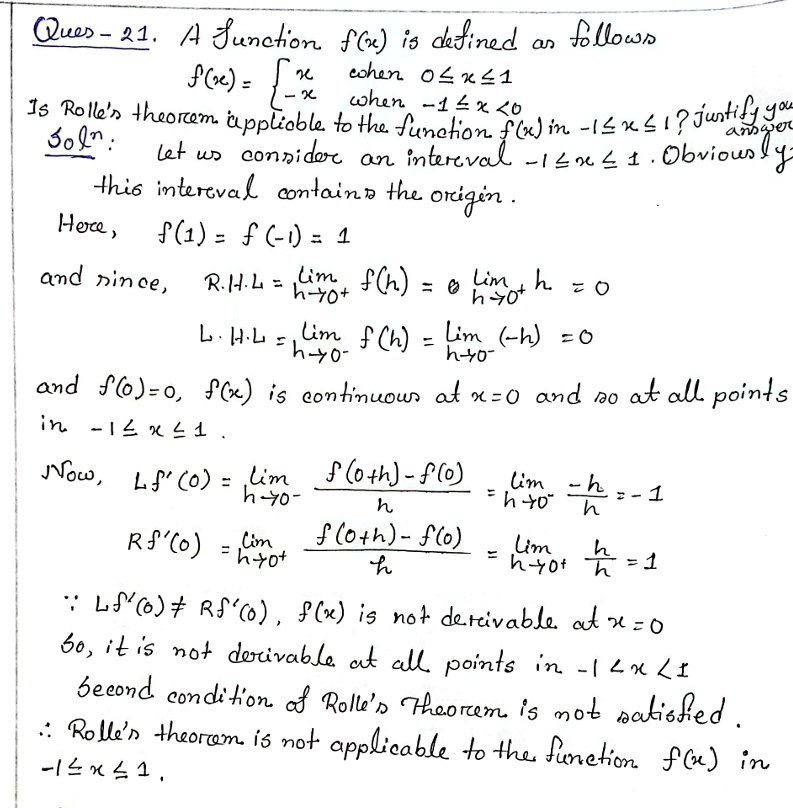 Ques - 21. A function f(x) is defined as follows
f(x) = { x when 0 ≤ x ≤ 1
-x when -1 ≤ x < 0
Is Rolle's theorem applicable to the function f(x) in -1 ≤ x ≤ 1? justify you
answer
Solⁿ: Let us consider an interval -1 ≤ x ≤ 1. Obviously
this interval contains the origin.
Here, f(1) = f(-1) = 1
and since, R.H.L = lim h→0+ f(h) = lim h→0+ h = 0
L.H.L = lim h→0- f(h) = lim h→0- (-h) = 0
and f(0)=0, f(x) is continuous at x=0 and so at all points
in -1 ≤ x ≤ 1.
Now, Lf'(0) = lim h→0- (f(0+h) - f(0))/h = lim h→0- -h/h = -1
Rf'(0) = lim h→0+ (f(0+h) - f(0))/h = lim h→0+ h/h = 1
∵ Lf'(0) ≠ Rf'(0), f(x) is not derivable at x=0
So, it is not derivable at all points in -1 < x < 1
Second condition of Rolle's Theorem is not satisfied.
∴ Rolle's theorem is not applicable to the function f(x) in
-1 ≤ x ≤ 1.